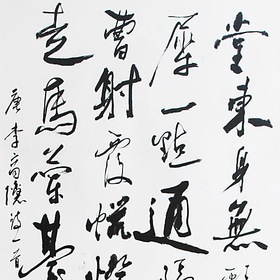 堂東身無
犀一點通
曹射覆
走馬蘭臺
唐李商隱詩一首